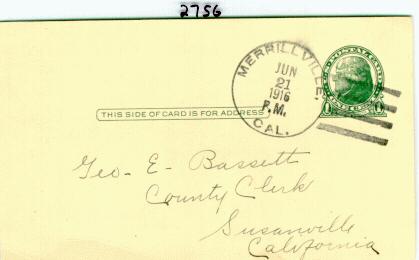 2756
MERRILLVILLE,
JUN
21
1916
P.M.
CAL.
THIS SIDE OF CARD IS FOR ADDRESS
Geo. E. Bassett
County Clerk
Susanville
California